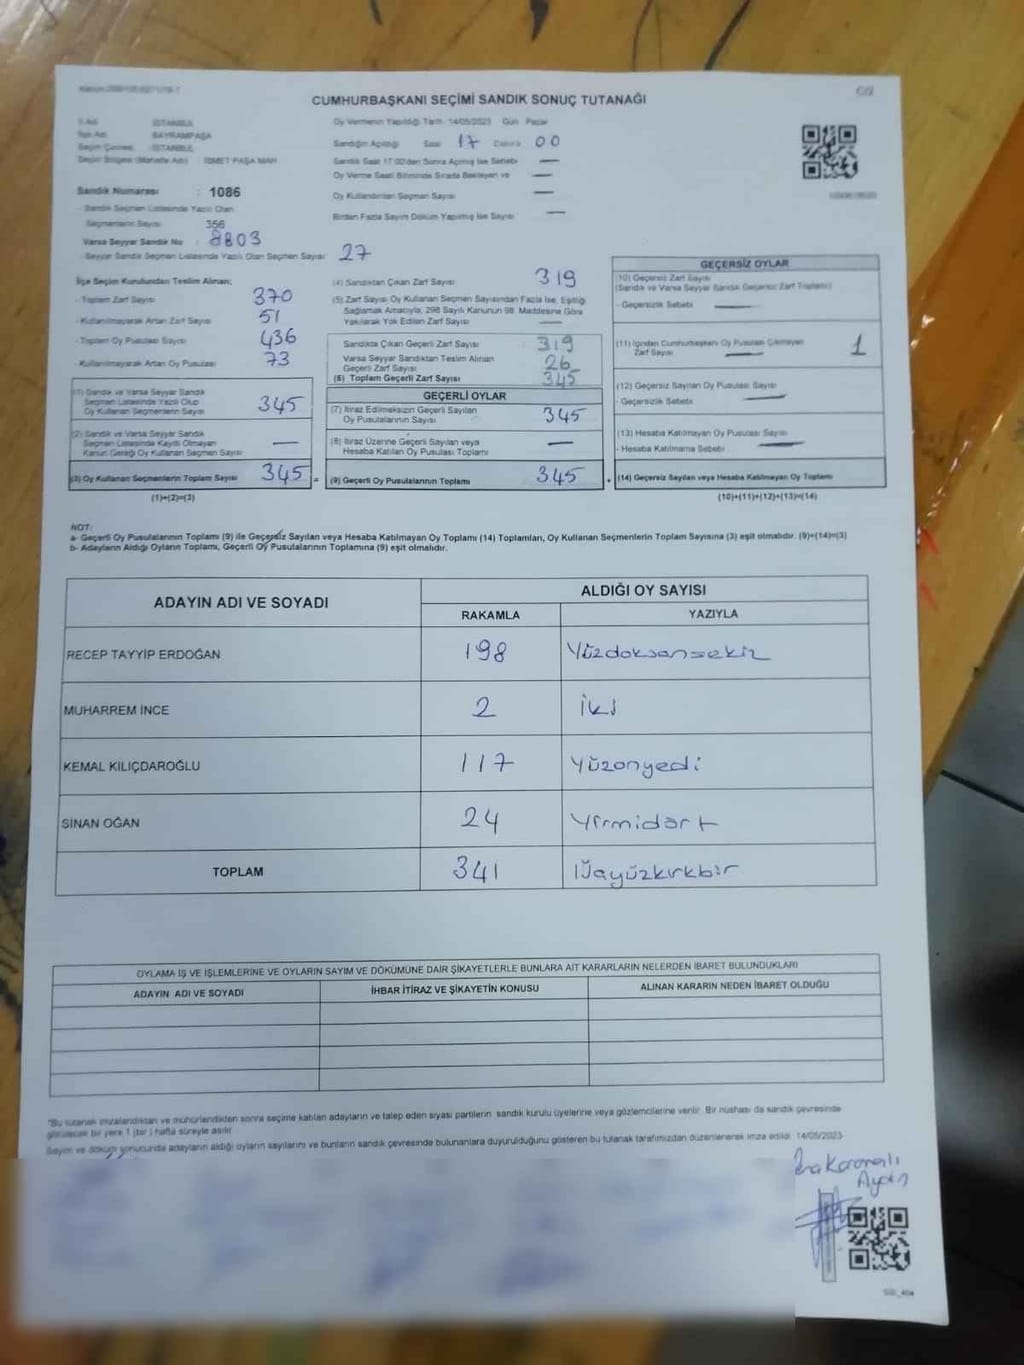 CUMHURBAŞKANI SEÇİMİ SANDIK SONUÇ TUTANAĞI
İl Adı İSTANBUL
İlçe Adı BAYRAMPAŞA
Seçim Çevresi İSTANBUL
Seçim Bölgesi (Mahalle Adı) İSMET PAŞA MAH
Sandık Numarası : 1086
- Sandık Seçmen Listesinde Yazılı Olan
Seçmenlerin Sayısı 356
Varsa Seyyar Sandık No : 8803
- Seyyar Sandık Seçmen Listesinde Yazılı Olan Seçmen Sayısı 27
Oy Vermenin Yapıldığı Tarih 14/05/2023 Gün Pazar
Sandığın Açıldığı Saat 17 Dakika 00
Sandık Saat 17:00'den Sonra Açılmış İse Sebebi —
Oy Verme Saati Bitiminde Sırada Bekleyen ve —
Oy Kullandırılan Seçmen Sayısı —
Birden Fazla Sayım Döküm Yapılmış İse Sayısı —
İlçe Seçim Kurulundan Teslim Alınan;
- Toplam Zarf Sayısı 370
- Kullanılmayarak Artan Zarf Sayısı 51
- Toplam Oy Pusulası Sayısı 436
- Kullanılmayarak Artan Oy Pusulası 73
(1) Sandık ve Varsa Seyyar Sandık
Seçmen Listesinde Yazılı Olup
Oy Kullanan Seçmenlerin Sayısı 345
(2) Sandık ve Varsa Seyyar Sandık
Seçmen Listesinde Kaydı Olmayan
Kanun Gereği Oy Kullanan Seçmen Sayısı —
(3) Oy Kullanan Seçmenlerin Toplam Sayısı 345 =
(1)+(2)=(3)
(4) Sandıktan Çıkan Zarf Sayısı 319
(5) Zarf Sayısı Oy Kullanan Seçmen Sayısından Fazla İse, Eşitliği
Sağlamak Amacıyla, 298 Sayılı Kanunun 98. Maddesine Göre
Yakılarak Yok Edilen Zarf Sayısı —
Sandıkta Çıkan Geçerli Zarf Sayısı 319
Varsa Seyyar Sandıktan Teslim Alınan
Geçerli Zarf Sayısı 26
(6) Toplam Geçerli Zarf Sayısı 345
GEÇERLİ OYLAR
(7) İtiraz Edilmeksizin Geçerli Sayılan
Oy Pusulalarının Sayısı 345
(8) İtiraz Üzerine Geçerli Sayılan veya
Hesaba Katılan Oy Pusulası Toplamı —
(9) Geçerli Oy Pusulalarının Toplamı 345 +
GEÇERSİZ OYLAR
(10) Geçersiz Zarf Sayısı
(Sandık ve Varsa Seyyar Sandık Geçersiz Zarf Toplamı)
- Geçersizlik Sebebi —
(11) İçinden Cumhurbaşkanı Oy Pusulası Çıkmayan
Zarf Sayısı — 1
(12) Geçersiz Sayılan Oy Pusulası Sayısı
- Geçersizlik Sebebi —
(13) Hesaba Katılmayan Oy Pusulası Sayısı
- Hesaba Katılmama Sebebi —
(14) Geçersiz Sayılan veya Hesaba Katılmayan Oy Toplamı
(10)+(11)+(12)+(13)=(14)
NOT:
a- Geçerli Oy Pusulalarının Toplamı (9) ile Geçersiz Sayılan veya Hesaba Katılmayan Oy Toplamı (14) Toplamları, Oy Kullanan Seçmenlerin Toplam Sayısına (3) eşit olmalıdır. (9)+(14)=(3)
b- Adayların Aldığı Oyların Toplamı, Geçerli Oy Pusulalarının Toplamına (9) eşit olmalıdır.
ADAYIN ADI VE SOYADI
ALDIĞI OY SAYISI
RAKAMLA YAZIYLA
RECEP TAYYİP ERDOĞAN 198 Yüzdoksansekiz
MUHARREM İNCE 2 İki
KEMAL KILIÇDAROĞLU 117 Yüzonyedi
SİNAN OĞAN 24 Yirmidört
TOPLAM 341 Üçyüzkırkbir
OYLAMA İŞ VE İŞLEMLERİNE VE OYLARIN SAYIM VE DÖKÜMÜNE DAİR ŞİKAYETLERLE BUNLARA AİT KARARLARIN NELERDEN İBARET BULUNDUKLARI
ADAYIN ADI VE SOYADI İHBAR İTİRAZ VE ŞİKAYETİN KONUSU ALINAN KARARIN NEDEN İBARET OLDUĞU
*Bu tutanak imzalandıktan ve mühürlendikten sonra seçime katılan adayların ve talep eden siyasi partilerin sandık kurulu üyelerine veya gözlemcilerine verilir. Bir nüshası da sandık çevresinde
görülecek bir yere 1 (bir) hafta süreyle asılır.
Sayım ve döküm sonucunda adayların aldığı oyların sayılarını ve bunların sandık çevresinde bulunanlara duyurulduğunu gösteren bu tutanak tarafımızdan düzenlenerek imza edildi. 14/05/2023
Aydın